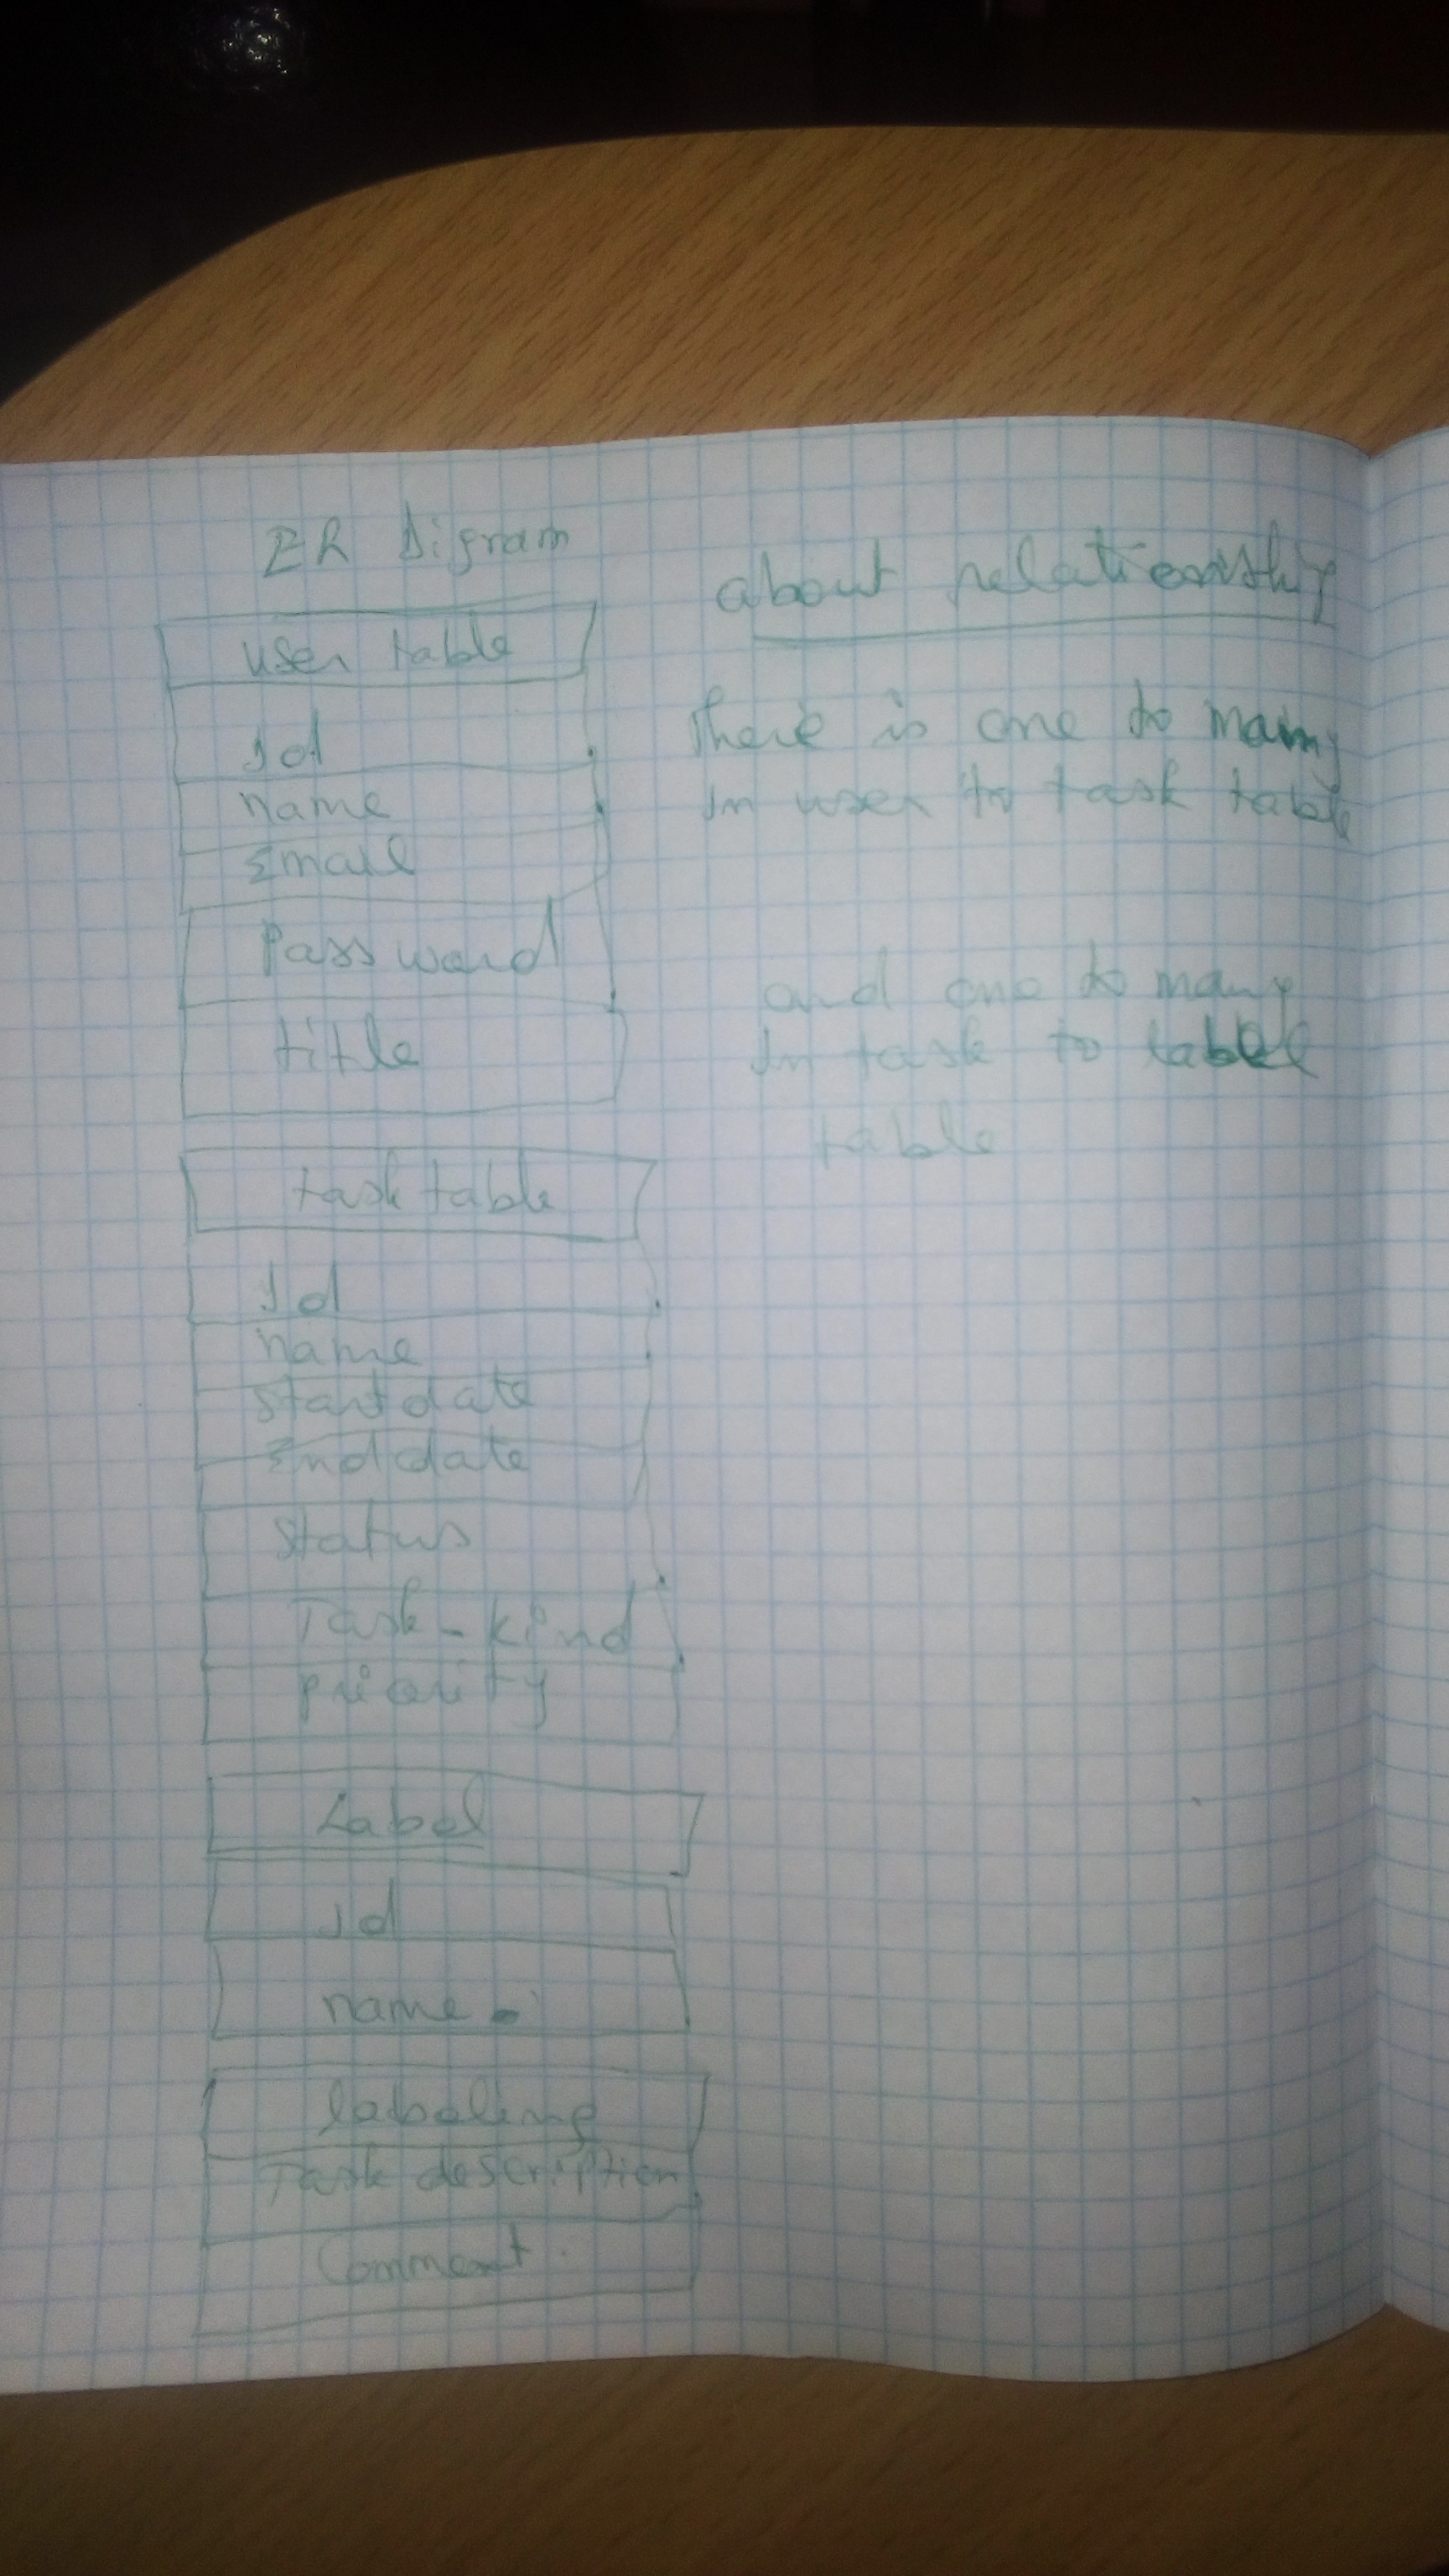 ER Digram
user table
Id
name
Email
Password
title
task table
Id
name
Start date
End date
Status
Task-kind
priority
Label
id
name
labeling
Task description
Comment
about relationship
There is one to many
In user to task table
and one to many
In task to label
table